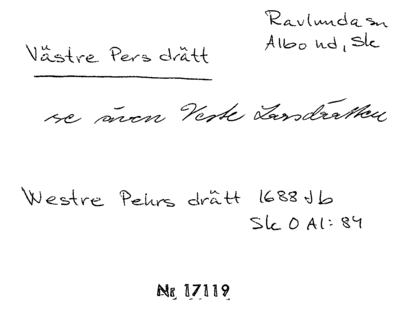 Ravlunda sn
Albo hd, Sk
Västre Pers drätt
se även Veste Larsdrätten
Westre Pehrs drätt 1688 Jb
Sk O Al: 84
Nr 17119